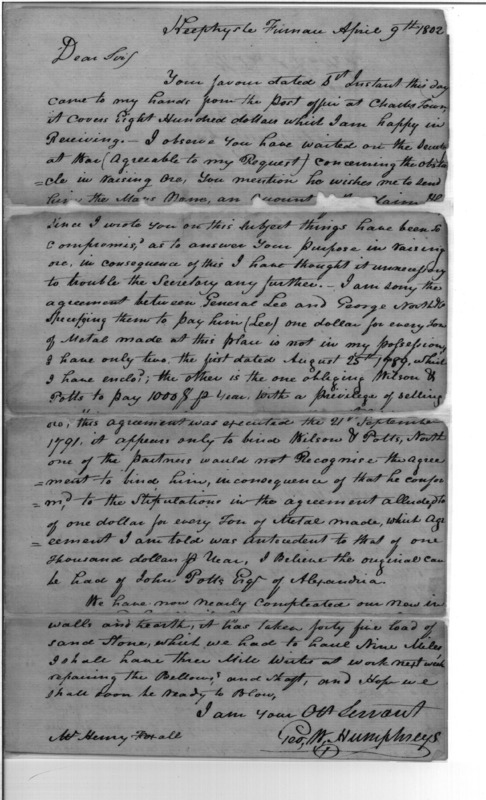 Keephyste Furnace April 9th 1802
Dear Sir,
Your favour dated 5th Instant this day
came to my hands from the post office at Charles Town,
it covers Eight Hundred dollars which I am happy in
Receiving. – I observe You have waited on the
at War (Agreeable to my Request) concerning the obsta
=cle in raising Ore, You mention he wishes me to send
him the Mans Name, an
Since I wrote You on this subject things have been so
compromis,d as to answer Your purpose in raising
ore, in consequence of this I have thought it unnecessary
to trouble the Secretary any further. – I am sorry the
agreement between General Lee and George North &c
Specifying them to pay him (Lee) one dollar for every Ton
of Metal made at this place is not in my possession,
I have only two, the first dated August 25th 1789, which
I have enclos,d; the other is the one obliging Wilson &
Potts to pay 1000$ pr Year, with a privilege of selling
ore; this agreement was executed the 21st September
1791. it appears only to bind Wilson & Potts, North
one of the partners would not Recognise the agree
=ment to bind him, in consequence of that he confor
=m,d to the Stipulations in the agreement allude,d to
of one dollar for every Ton of Metal made, which Agr
=eement I am told was antecedent to that of one
thousand dollars pr Year, I Believe the original can
be had of John Potts Esqr of Alexandria.
We have now nearly compleated our New in
walls and hearth, it has taken forty five load of
sand Stone, which we had to haul Nine Miles
I shall have three Mill Writes at work next week
repairing the Bellows, and Shaft, and Hope we
shall soon be ready to Blow,
I am Your Obt Servant
Mr Henry Foxall
Geo, W, Humphreys